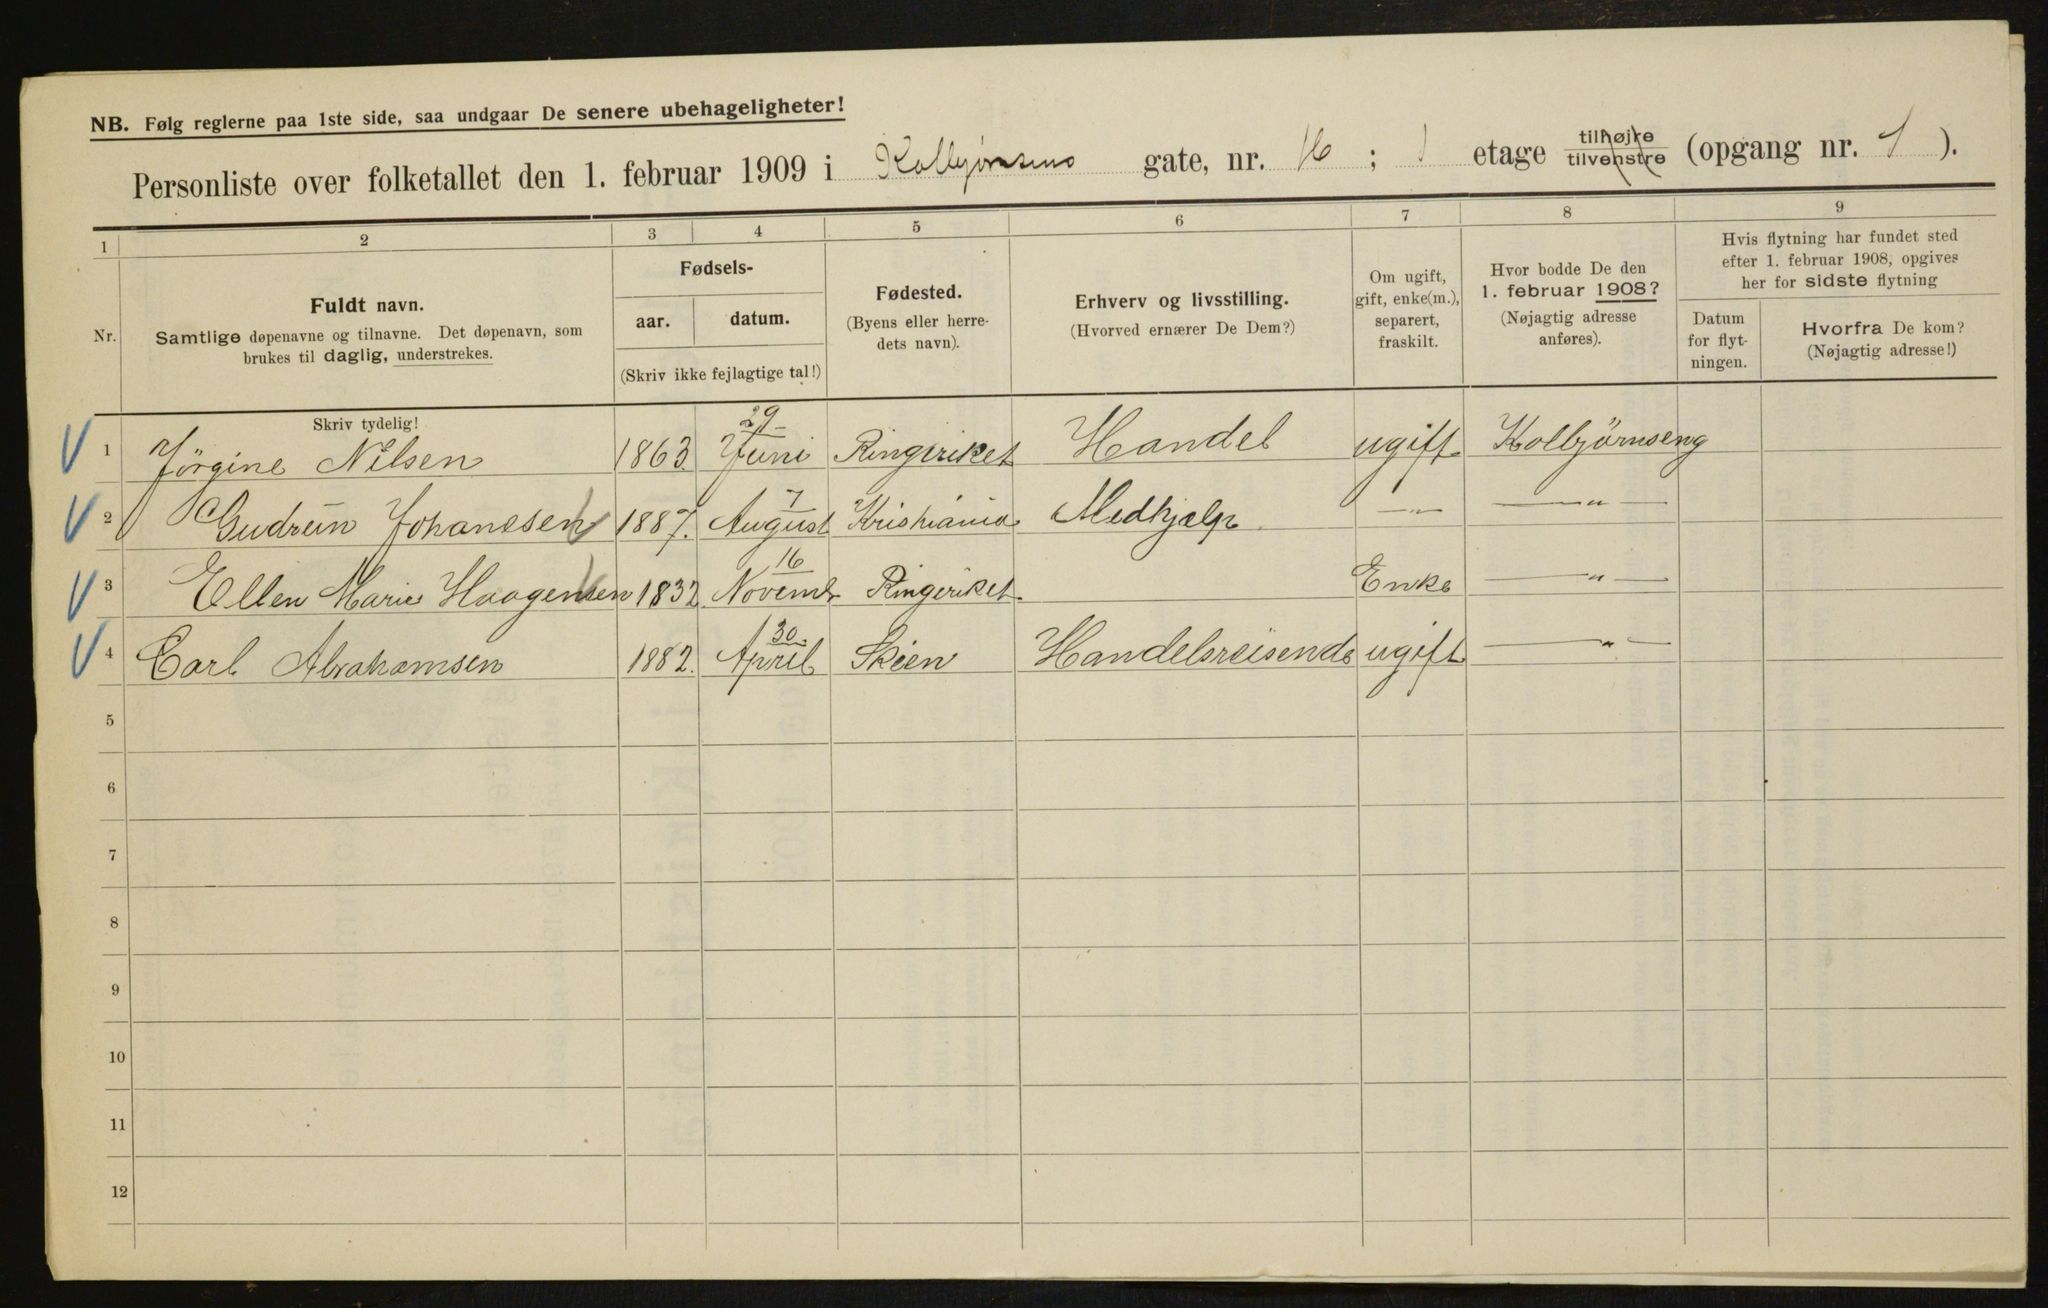 NB. Følg reglerne paa 1ste side, saa undgaar De senere ubehageligheter!
Personliste over folketallet den 1. februar 1909 i Kolbjørnsens gate, nr. 16 ; 1 etage tilhøjre tilvenstre (opgang nr. 1 ).
1 2 3 4 5 6 7 8 9
Nr.
Fuldt navn.
Samtlige døpenavne og tilnavne. Det døpenavn, som
brukes til daglig, understrekes.
Skriv tydelig!
Fødsels-
aar. datum.
(Skriv ikke fejlagtige tal!)
Fødested.
(Byens eller herre-
dets navn).
Erhverv og livsstilling.
(Hvorved ernærer De Dem?)
Om ugift,
gift, enke(m.),
separert,
fraskilt.
Hvor bodde De den
1. februar 1908?
(Nøjagtig adresse
anføres).
Hvis flytning har fundet sted
efter 1. februar 1908, opgives
her for sidste flytning
Datum
for flyt-
ningen.
Hvorfra De kom?
(Nøjagtig adresse!)
1 Jörgine Nilsen 1863. 29 Juni Ringeriket Handel ugift Kolbjörnseng
2 Gudrun Johannesen 1887. 7 August Kristiania Medhjælp. —„— —„—
3 Ellen Marie Haagensen 1832 16 Novembr Ringeriket. Enke —„—
4 Carl Abrahamsen 1882. 30. April Skien Handelsreisende ugift —„—
5
6
7
8
9
10
11
12